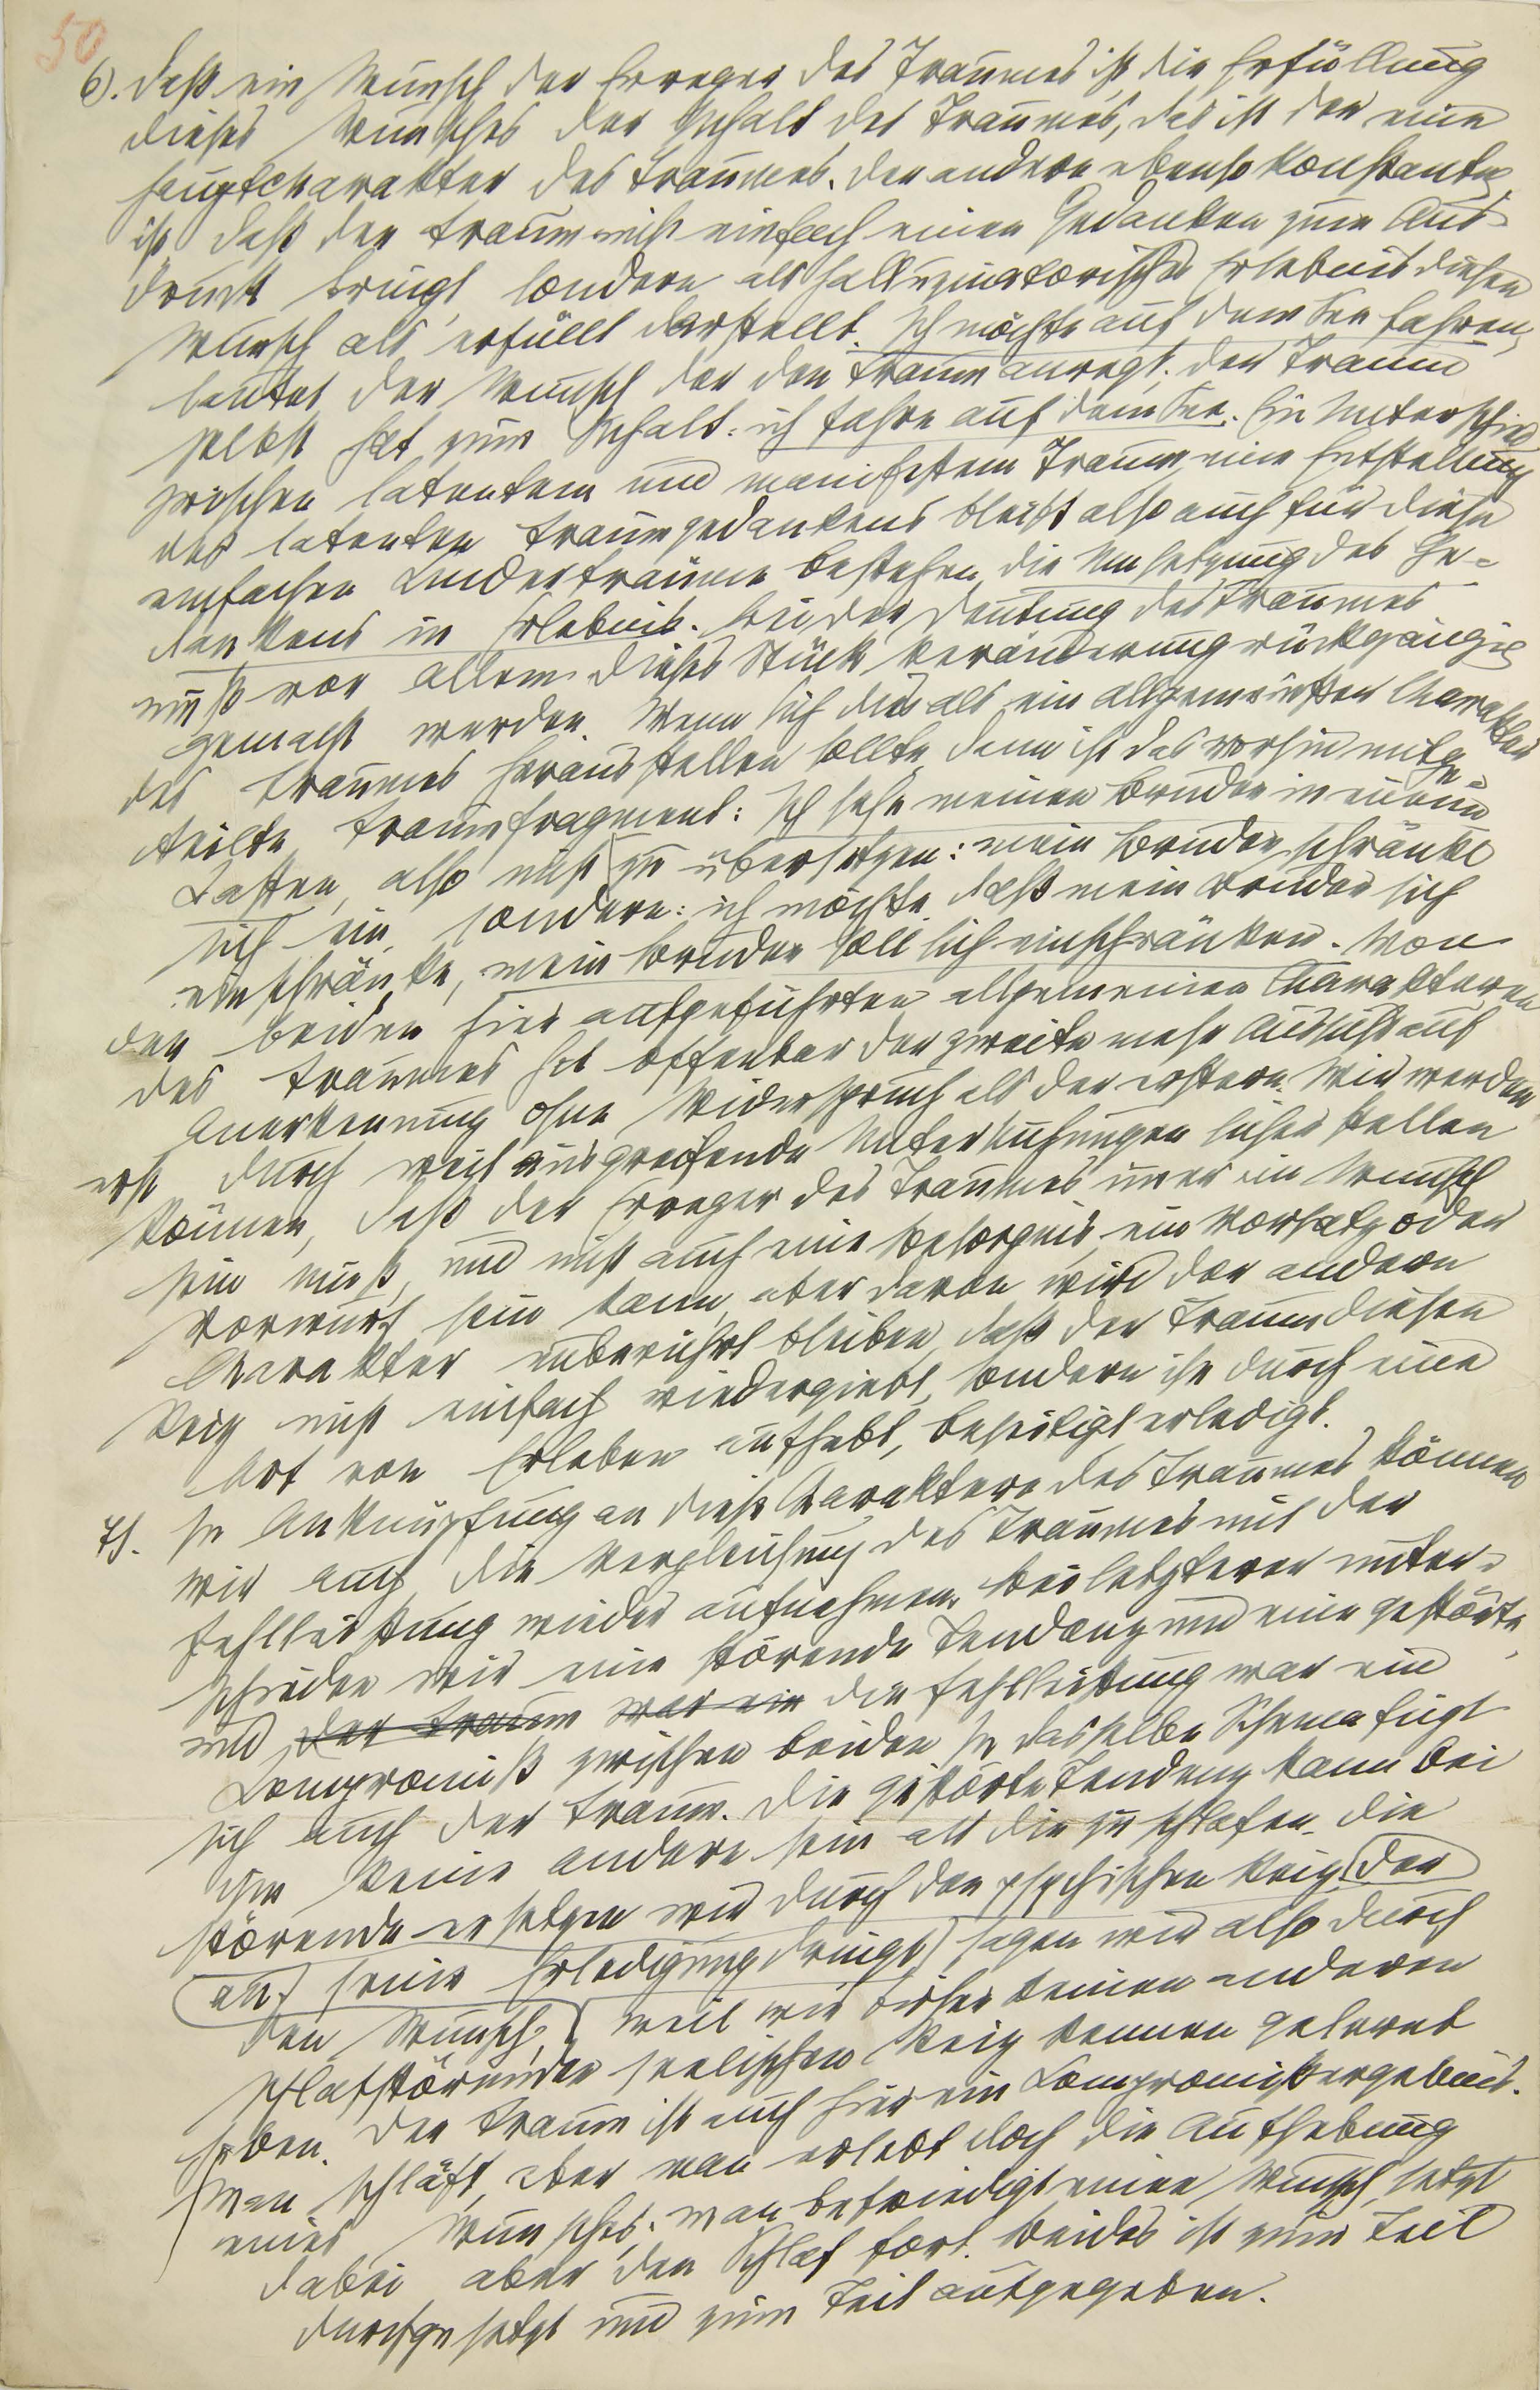 50
6). Daß ein Wunsch der Erreger des Traumes ist, die Erfüllung
dieses Wunsches der Inhalt des Traumes, das ist der eine
Hauptcharakter des Traumes. Der andere ebenso konstante
ist, daß der Traum nicht einfach einen Gedanken zum Aus-
druck bringt, sondern als halluzinatorisches Erlebnis diesen
Wunsch als erfüllt darstellt. Ich möchte auf dem See fahren,
lautet der Wunsch der den Traum anregt; der Traum
selbst hat zum Inhalt: ich fahre auf dem See. Ein Unterschied
zwischen latentem und manifestem Traum, eine Entstellung
des latenten Traumgedankens bleibt also auch für diese
einfachen Kinderträume bestehen, die Umsetzung des Ge-
dankens in Erlebnis. Bei der Deutung des Traumes
muß vor allem dieses Stück Veränderung rückgängig
gemacht werden. Wenn sich dies als ein allgemeinster Charakter
des Traumes herausstellen sollte, dann ist das vorhin mitge-
teilte Traumfragment: Ich sehe meinen Bruder in einem
Kasten, also nicht zu übersetzen: mein Bruder schränkt
sich ein, sondern: ich möchte, daß mein Bruder sich
einschränke, mein Bruder soll sich einschränken. Von
den beiden hier aufgeführten allgemeinen Charakteren
des Traumes hat offenbar der zweite mehr Aussicht auf
Anerkennung ohne Widerspruch als der erstere. Wir werden
erst durch weit ausgreifende Untersuchungen sicher stellen
können, daß der Erreger des Traumes immer ein Wunsch
sein muß, und nicht auch eine Besorgnis, ein Vorsatz oder
Vorwurf sein kann, aber davon wird der andere
Charakter unberührt bleiben, daß der Traum diesen
Reiz nicht einfach wiedergiebt, sondern ihn durch eine
Art von Erleben aufhebt, beseitigt erledigt.
7). In Anknüpfung an diese Charaktere des Traumes können
wir auch die Vergleichung des Traumes mit der
Fehlleistung wieder aufnehmen. Bei letzterer unter-
scheiden wir eine störende Tendenz und eine gestörte,
und der Traum war ein die Fehlleistung war ein
Kompromiß zwischen beiden. In dasselbe Schema fügt
sich auch der Traum. Die gestörte Tendenz kann bei
ihm keine andere sein als die zu schlafen. Die
störende ersetzen wir durch den psychischen Reiz, (der
auf seine Erledigung dringt) sagen wir also durch
den Wunsch, weil wir bisher keinen anderen
schlafstörenden seelischen Reiz kennen gelernt
haben. Der Traum ist auch hier ein Kompromißergebnis.
Man schläft, aber man erlebt doch die Aufhebung
eines Wunsches; man befriedigt einen Wunsch, setzt
dabei aber den Schlaf fort. Beides ist zum Teil
durchgesetzt und zum Teil aufgegeben.